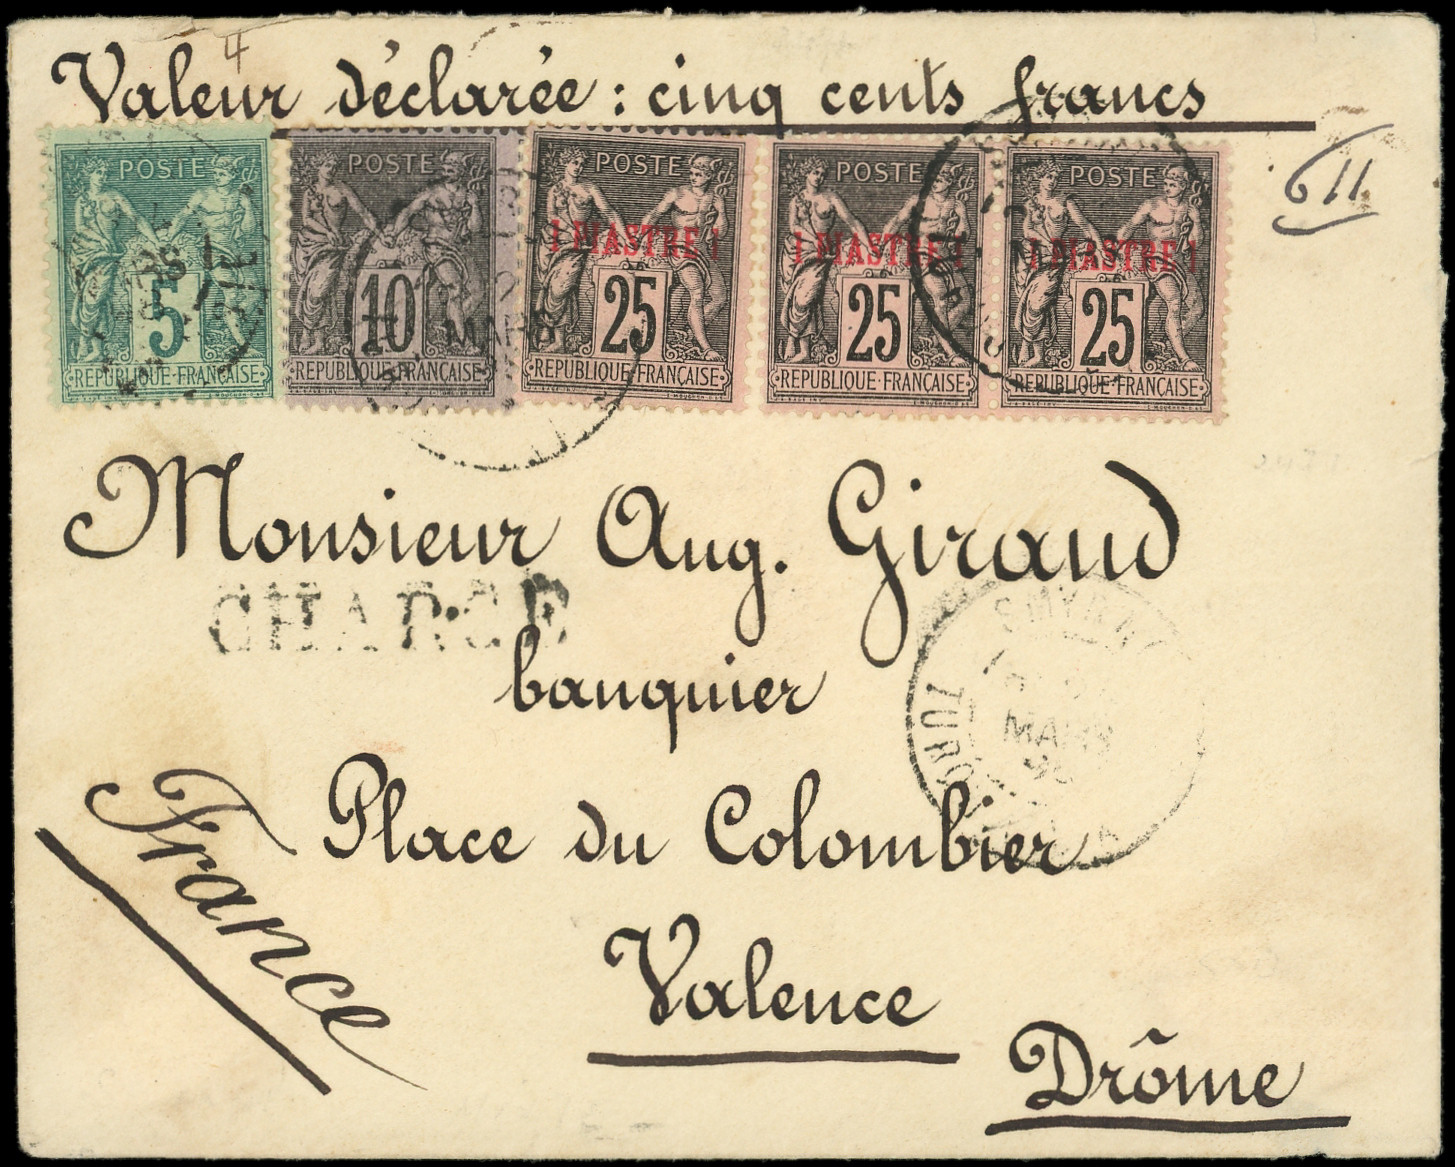 4
Valeur déclarée : cinq cents francs
611
POSTE
5
REPUBLIQUE·FRANÇAISE
POSTE
10
MARS
REPUBLIQUE·FRANÇAISE
POSTE
1 PIASTRE 1
25
REPUBLIQUE·FRANÇAISE
POSTE
1 PIASTRE 1
25
REPUBLIQUE·FRANÇAISE
POSTE
1 PIASTRE 1
25
REPUBLIQUE·FRANÇAISE
Monsieur Aug. Giraud
CHARGE
banquier
SMYRNE
MARS
Place du Colombier
France
Valence
Drôme